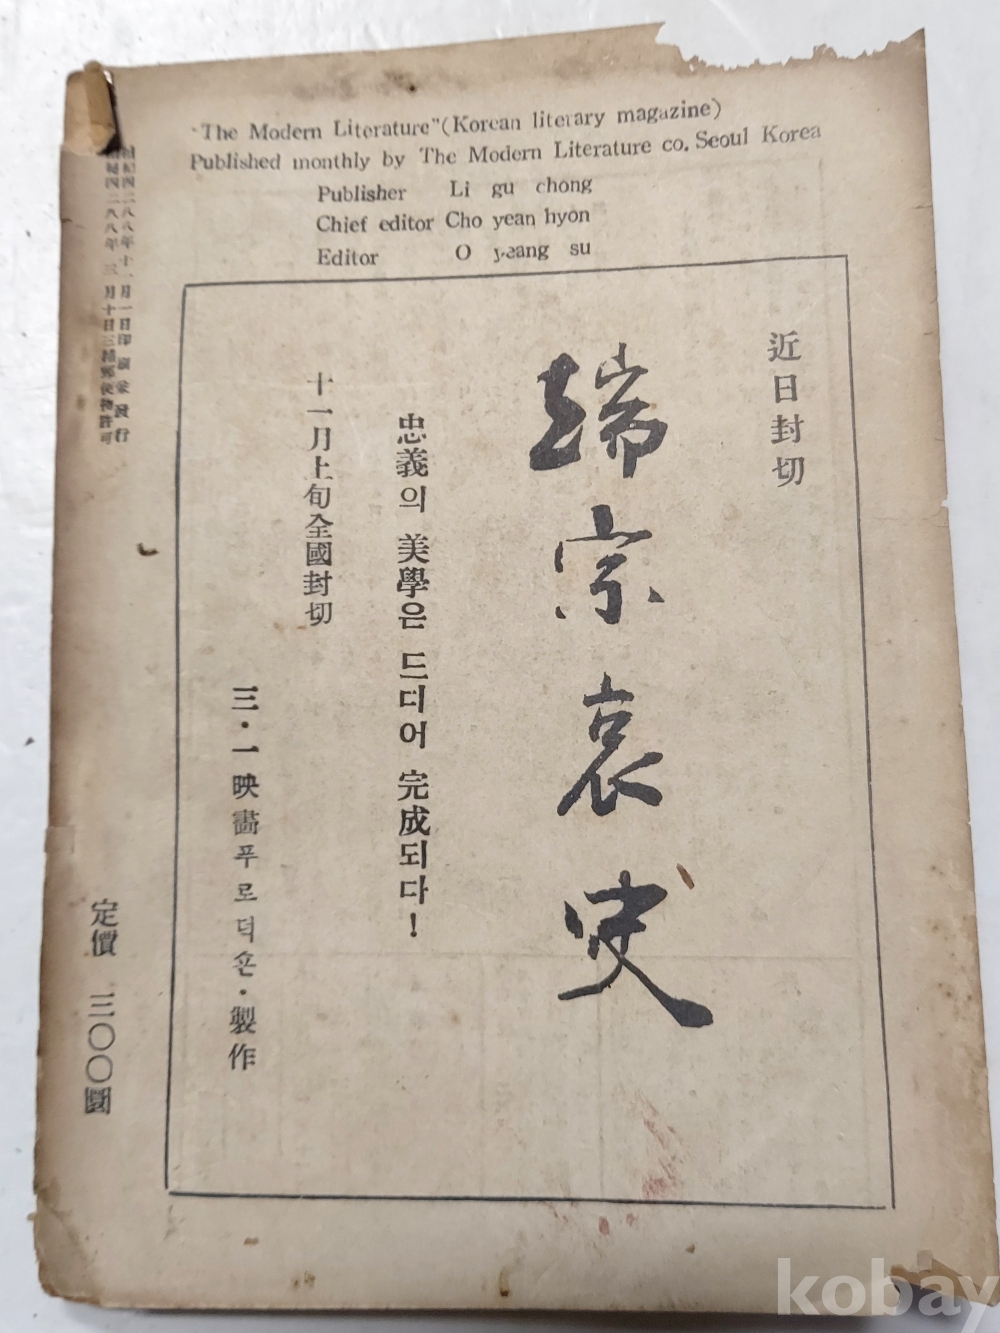 "The Modern Literature"(Korean literary magazine)
Published monthly by The Modern Literature co. Seoul Korea
Publisher Li gu chong
Chief editor Cho yean hyon
Editor O yeang su
近日封切
端宗哀史
忠義의 美學은 드디어 完成되다!
十一月上旬全國封切
三·一映畵푸로덕숀·製作
檀紀四二八八年十一月一日印刷發行
檀紀四二八八年三月十日三種郵便物許可
定價 三〇〇圜
kobay